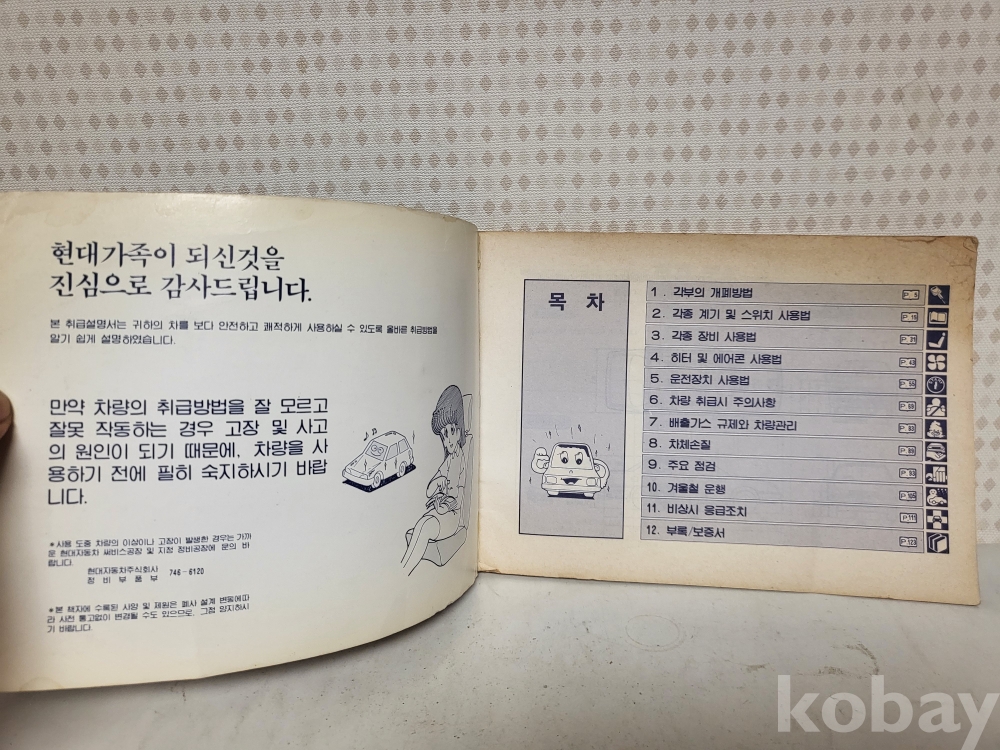 현대가족이 되신것을
진심으로 감사드립니다.
본 취급설명서는 귀하의 차를 보다 안전하고 쾌적하게 사용하실 수 있도록 올바른 취급방법을
알기 쉽게 설명하였습니다.
만약 차량의 취급방법을 잘 모르고
잘못 작동하는 경우 고장 및 사고
의 원인이 되기 때문에, 차량을 사
용하기 전에 필히 숙지하시기 바랍
니다.
*사용 도중 차량의 이상이나 고장이 발생한 경우는 가까
운 현대자동차 써비스공장 및 지정 정비공장에 문의 바
랍니다.
현대자동차주식회사
정비부품부 746-6120
*본 책자에 수록된 사양 및 제원은 폐사 설계 변동에따
라 사전 통고없이 변경될 수도 있으므로, 그점 양지하시
기 바랍니다.
목 차
1. 각부의 개폐방법 P.5
2. 각종 계기 및 스위치 사용법 P.19
3. 각종 장비 사용법 P.31
4. 히터 및 에어콘 사용법 P.43
5. 운전장치 사용법 P.55
6. 차량 취급시 주의사항 P.69
7. 배출가스 규제와 차량관리 P.83
8. 차체손질 P.89
9. 주요 점검 P.93
10. 겨울철 운행 P.105
11. 비상시 응급조치 P.111
12. 부록/보증서 P.123
kobay